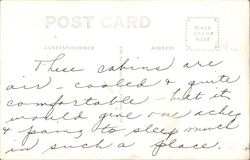 POST CARD
PLACE
STAMP
HERE
CORRESPONDENCE
ADDRESS
These cabins are
air-cooled & quite
comfortable - but it
would give one aches
& pains to sleep much
in such a place.